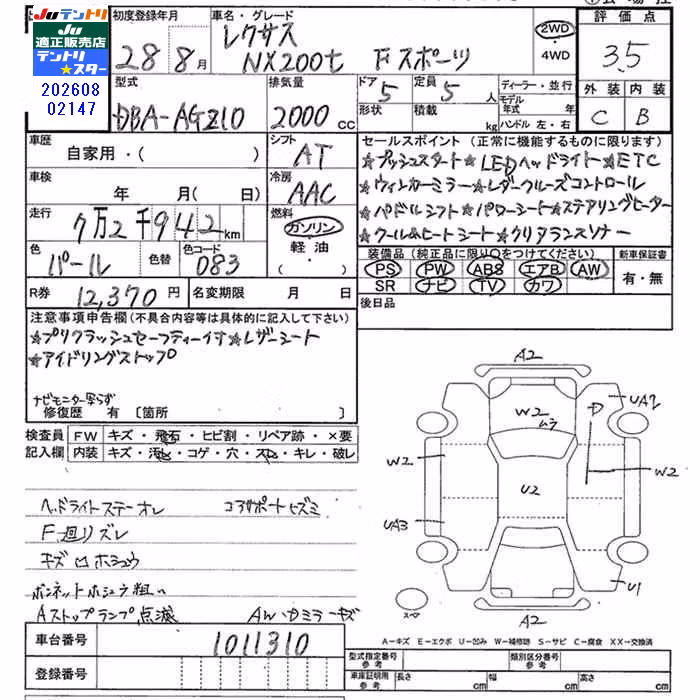 Juテントリ
JU
適正販売店
テントリ
★スター
202608
02147
初度登録年月
28年8月
車名・グレード
レクサス
NX200t Fスポーツ
2WD
4WD
評価点
3.5
外装 内装
C B
型式
DBA-AGZ10
排気量
2000cc
ドア 5
形状
定員 5人
積載 kg
ディーラー・並行
モデル年式 年
ハンドル 左・右
車歴
自家用・( )
シフト
AT
車検
年 月( 日)
冷房
AAC
走行
7万2千942km
燃料
ガソリン
軽油
・( )
色
パール
色替
色コード
083
R券 12,370円
名変期限 月 日
セールスポイント(正常に機能するものに限ります)
★プッシュスタート★LEDヘッドライト★ETC
★ウィンカーミラー★レダークルーズコントロール
★パドルシフト★パワーシート★ステアリングヒーター
★クール&ヒートシート★クリアランスソナー
装備品(純正品に限り○をつけてください)
PS PW ABS エアB AW
SR ナビ TV カワ
新車保証書
有・無
後日品
注意事項申告欄(不具合内容等は具体的に記入して下さい)
★プリクラッシュセーフティー付★レザーシート
★アイドリングストップ
ナビモニター写らず
修復歴 有 〔箇所 〕
検査員記入欄
FW キズ・飛石・ヒビ割・リペア跡・×要
内装 キズ・汚れ・コゲ・穴・スレ・キレ・破レ
ヘッドライトステーオレ コアサポートヒズミ
F廻リズレ
キズ凹ホシュウ
ボンネットホシュウ粗い
Aストップランプ点滅 AWカミラーキズ
A2
W2
ムラ
UA2
W2
W2
U2
UA3
U1
スペア
A2
A-キズ E-エクボ U-凹み W-補修跡 S-サビ C-腐食 XX-交換済
車台番号
1011310
登録番号
型式指定番号 参考
類別区分番号 参考
車庫証明用 参考
長さ cm 幅 cm 高さ cm